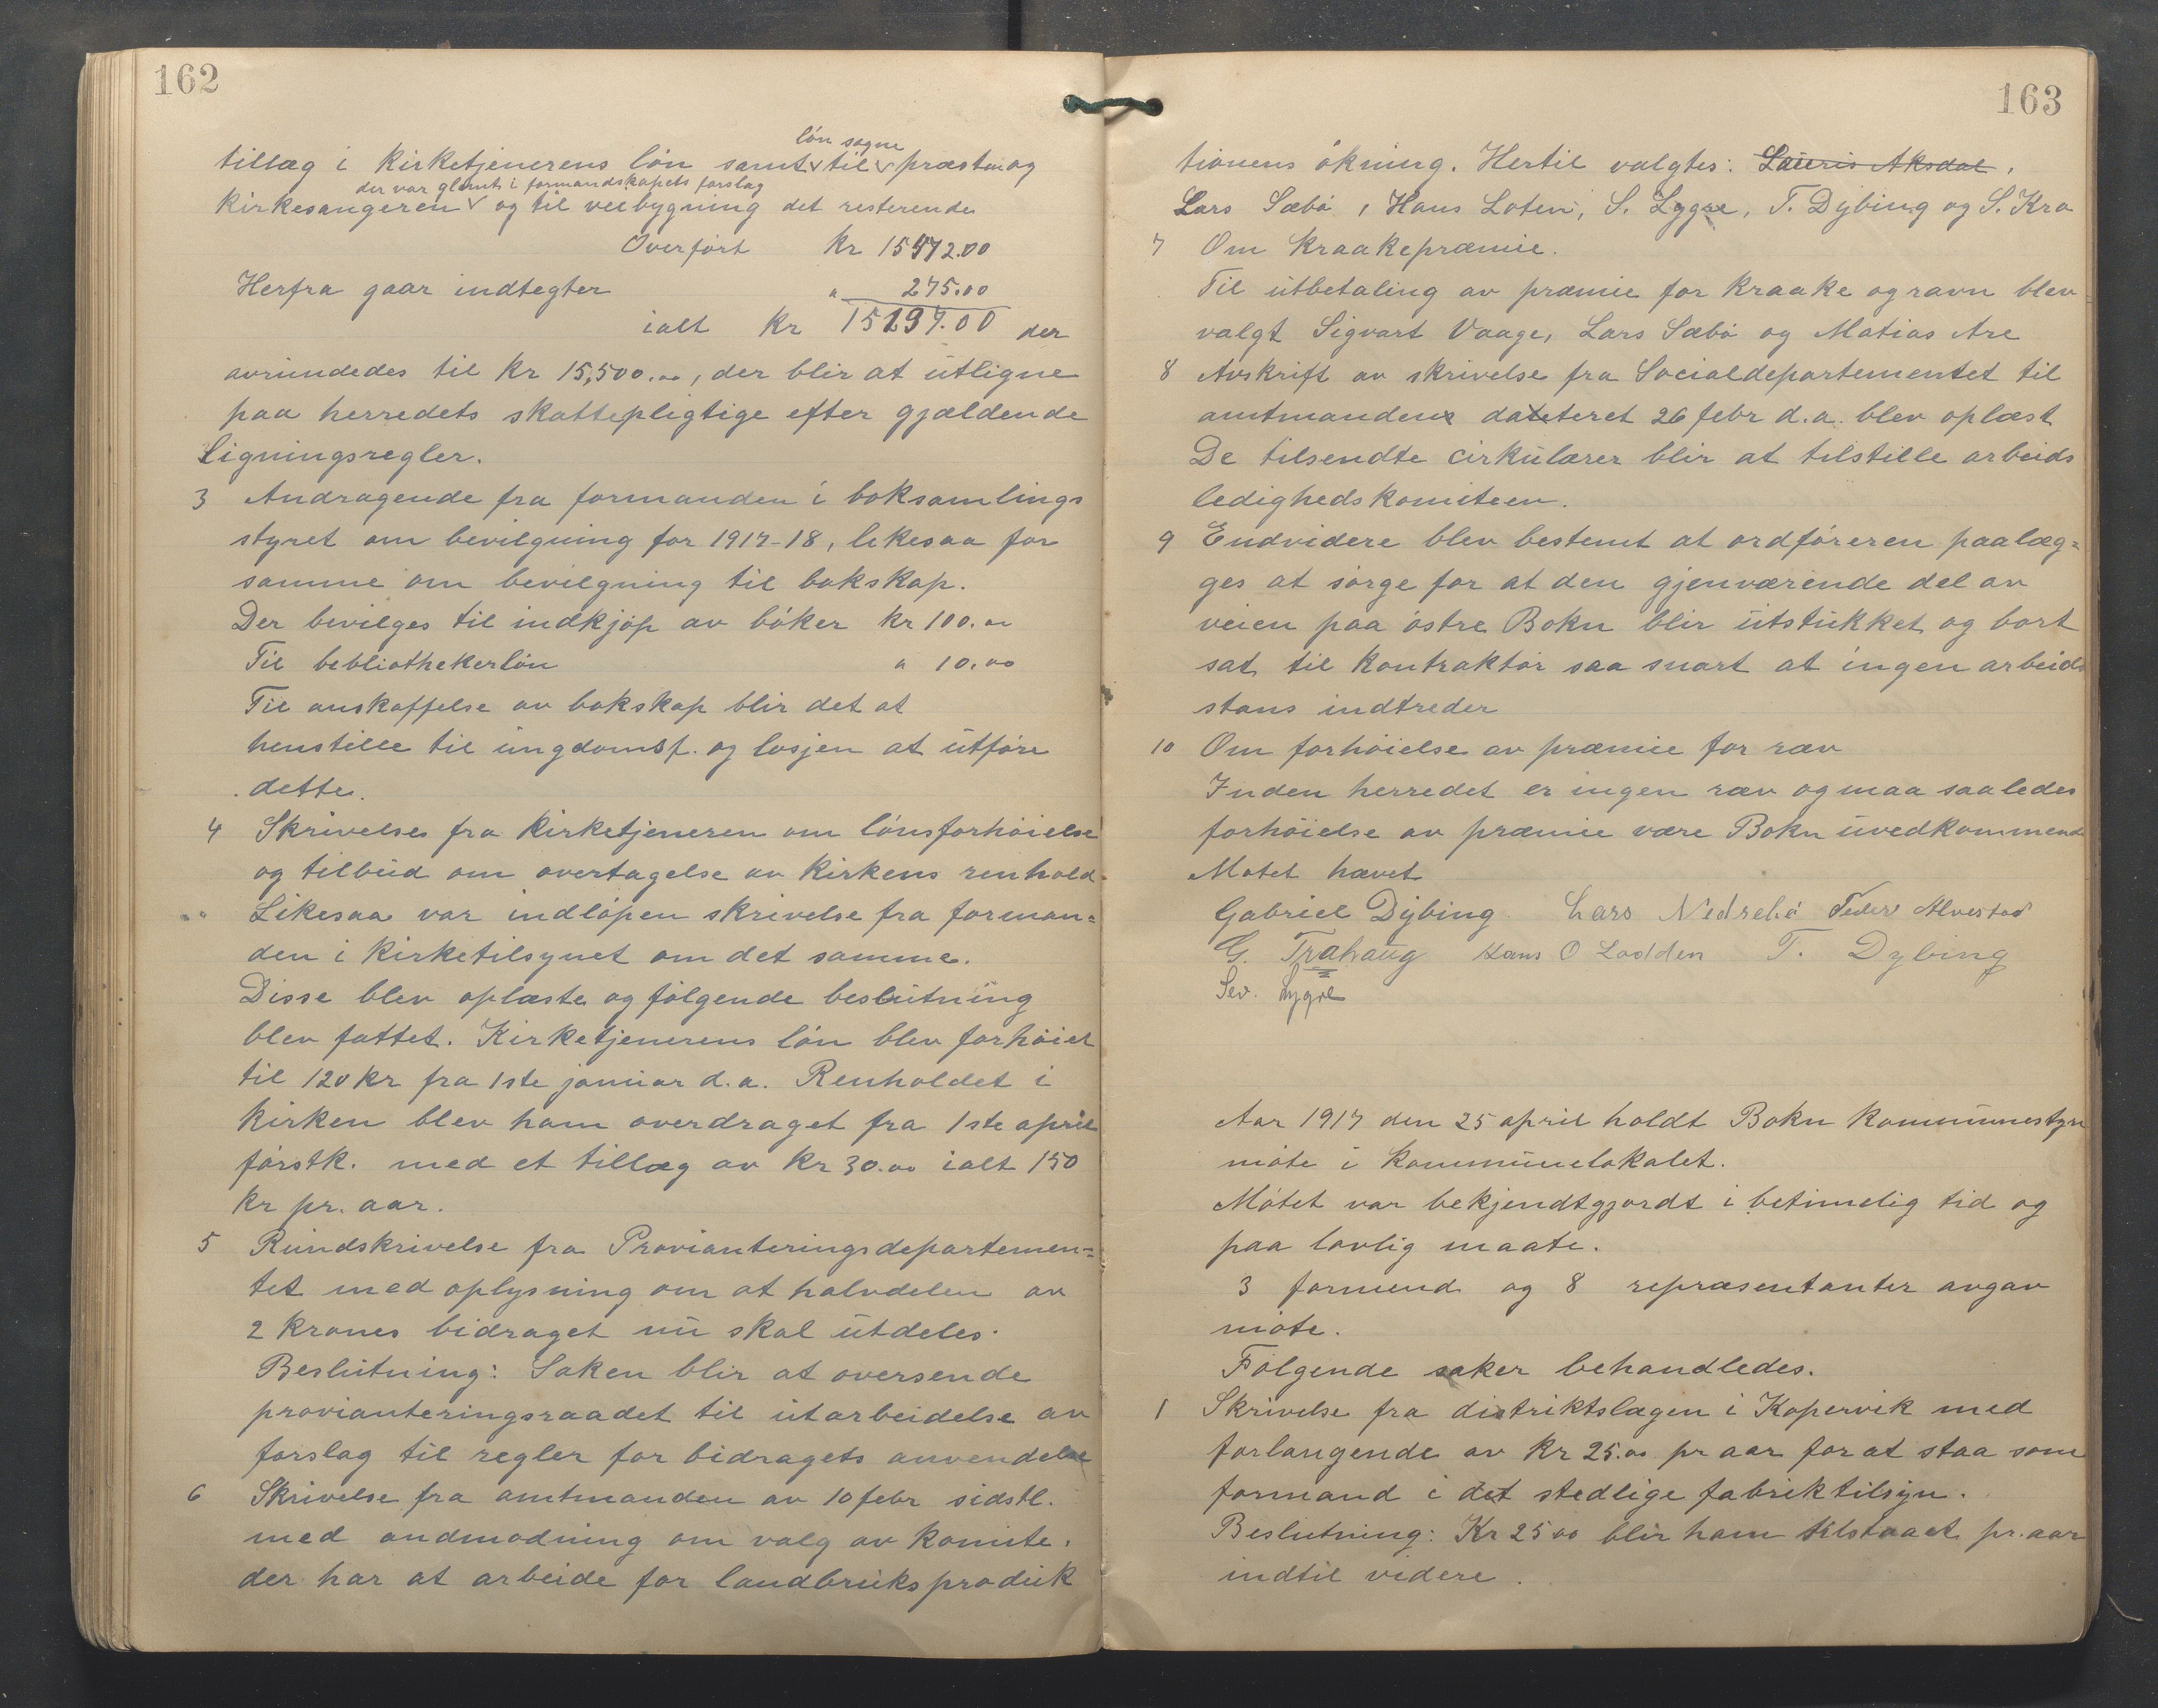 162
løn sogne
tillæg i Kirketjenerens løn samt til præsten og
der var glemt i formandskapets forslag
Kirkesangeren og til veibygning det resterende
Overført Kr 15572.00
Herfra gaar indtegter " 275.00
ialt Kr 15297.00 der
avrundedes til Kr 15,500.00, der blir at utligne
paa herredets skattepligtige efter gjældende
Ligningsregler.
3 Andragende fra formanden i boksamlings
styret om bevilgning for 1917-18, likesaa for
samme om bevilgning til bokskap.
Der bevilges til indkjøp av bøker Kr 100.00
Til bebliothekerløn " 10.00
Til anskaffelse av bokskap blir det at
henstille til ungdomsf. og losjen at utføre
dette.
4 Skrivelse fra Kirketjeneren om lønsforhøielse
og tilbud om overtagelse av Kirkens renhold.
Likesaa var indløpen skrivelse fra forman=
den i Kirketilsynet om det samme.
Disse blev oplæste og følgende beslutning
blev fattet. Kirketjenerens løn blev forhøiet
til 120 Kr fra 1ste januar d.a. Renholdet i
Kirken blev ham overdraget fra 1ste april
førstk. med et tillæg av Kr 30.00 ialt 150
Kr pr. aar.
5 Rundskrivelse fra Provianteringsdepartemen=
tet med oplysning om at halvdelen av
2 Krones bidraget nu skal utdeles.
Beslutning: Saken blir at oversende
provianteringsraadet til utarbeidelse av
forslag til regler for bidragets anvendelse
6 Skrivelse fra amtmanden av 10 febr sidstl.
med andmodning om valg av Komite.
der har at arbeide for landbruksproduk
163
tionens økning. Hertil valgtes: Lauris Aksdal,
Lars Sæbø, Hans Loten, S. Lygre, T. Dybing og S. Kro
7 Om Kraakepræmie.
Til utbetaling av præmie for Kraake og ravn blev
valgt Sigvart Vaage, Lars Sæbø og Matias Are
8 Avskrift av skrivelse fra Socialdepartementet til
amtmanden dateteret 26 febr d.a. blev oplæst
De tilsendte cirkulærer blir at tilstille arbeids
ledighedskomiteen.
9 Endvidere blev bestemt at ordføreren paalæg=
ges at sørge for at den gjenværende del av
veien paa østre Bokn blir utstukket og bort
sat til Kontraktør saa snart at ingen arbeids
stans indtreder
10 Om forhøielse av præmie for ræv
Inden herredet er ingen ræv og maa saaledes
forhøielse av præmie være Bokn uvedkommende
Møtet hævet
Gabriel Dybing Lars Nedrebø Peder Alvestad
G. Trahaug Hans O Lodden T. Dybing
Sev. Lygre
Aar 1917 den 25 april holdt Bokn Kommunestyre
møte i Kommunelokalet.
Møtet var bekjendtgjordt i betimelig tid og
paa lovlig maate.
3 formend og 8 repræsentanter avgav
møte.
Følgende saker behandledes.
1 Skrivelse fra distriktslægen i Kopervik med
forlangende av Kr 25.00 pr aar for at staa som
formand i det stedlige fabriktilsyn.
Beslutning: Kr 25 00 blir ham tilstaaet pr. aar
indtil videre.